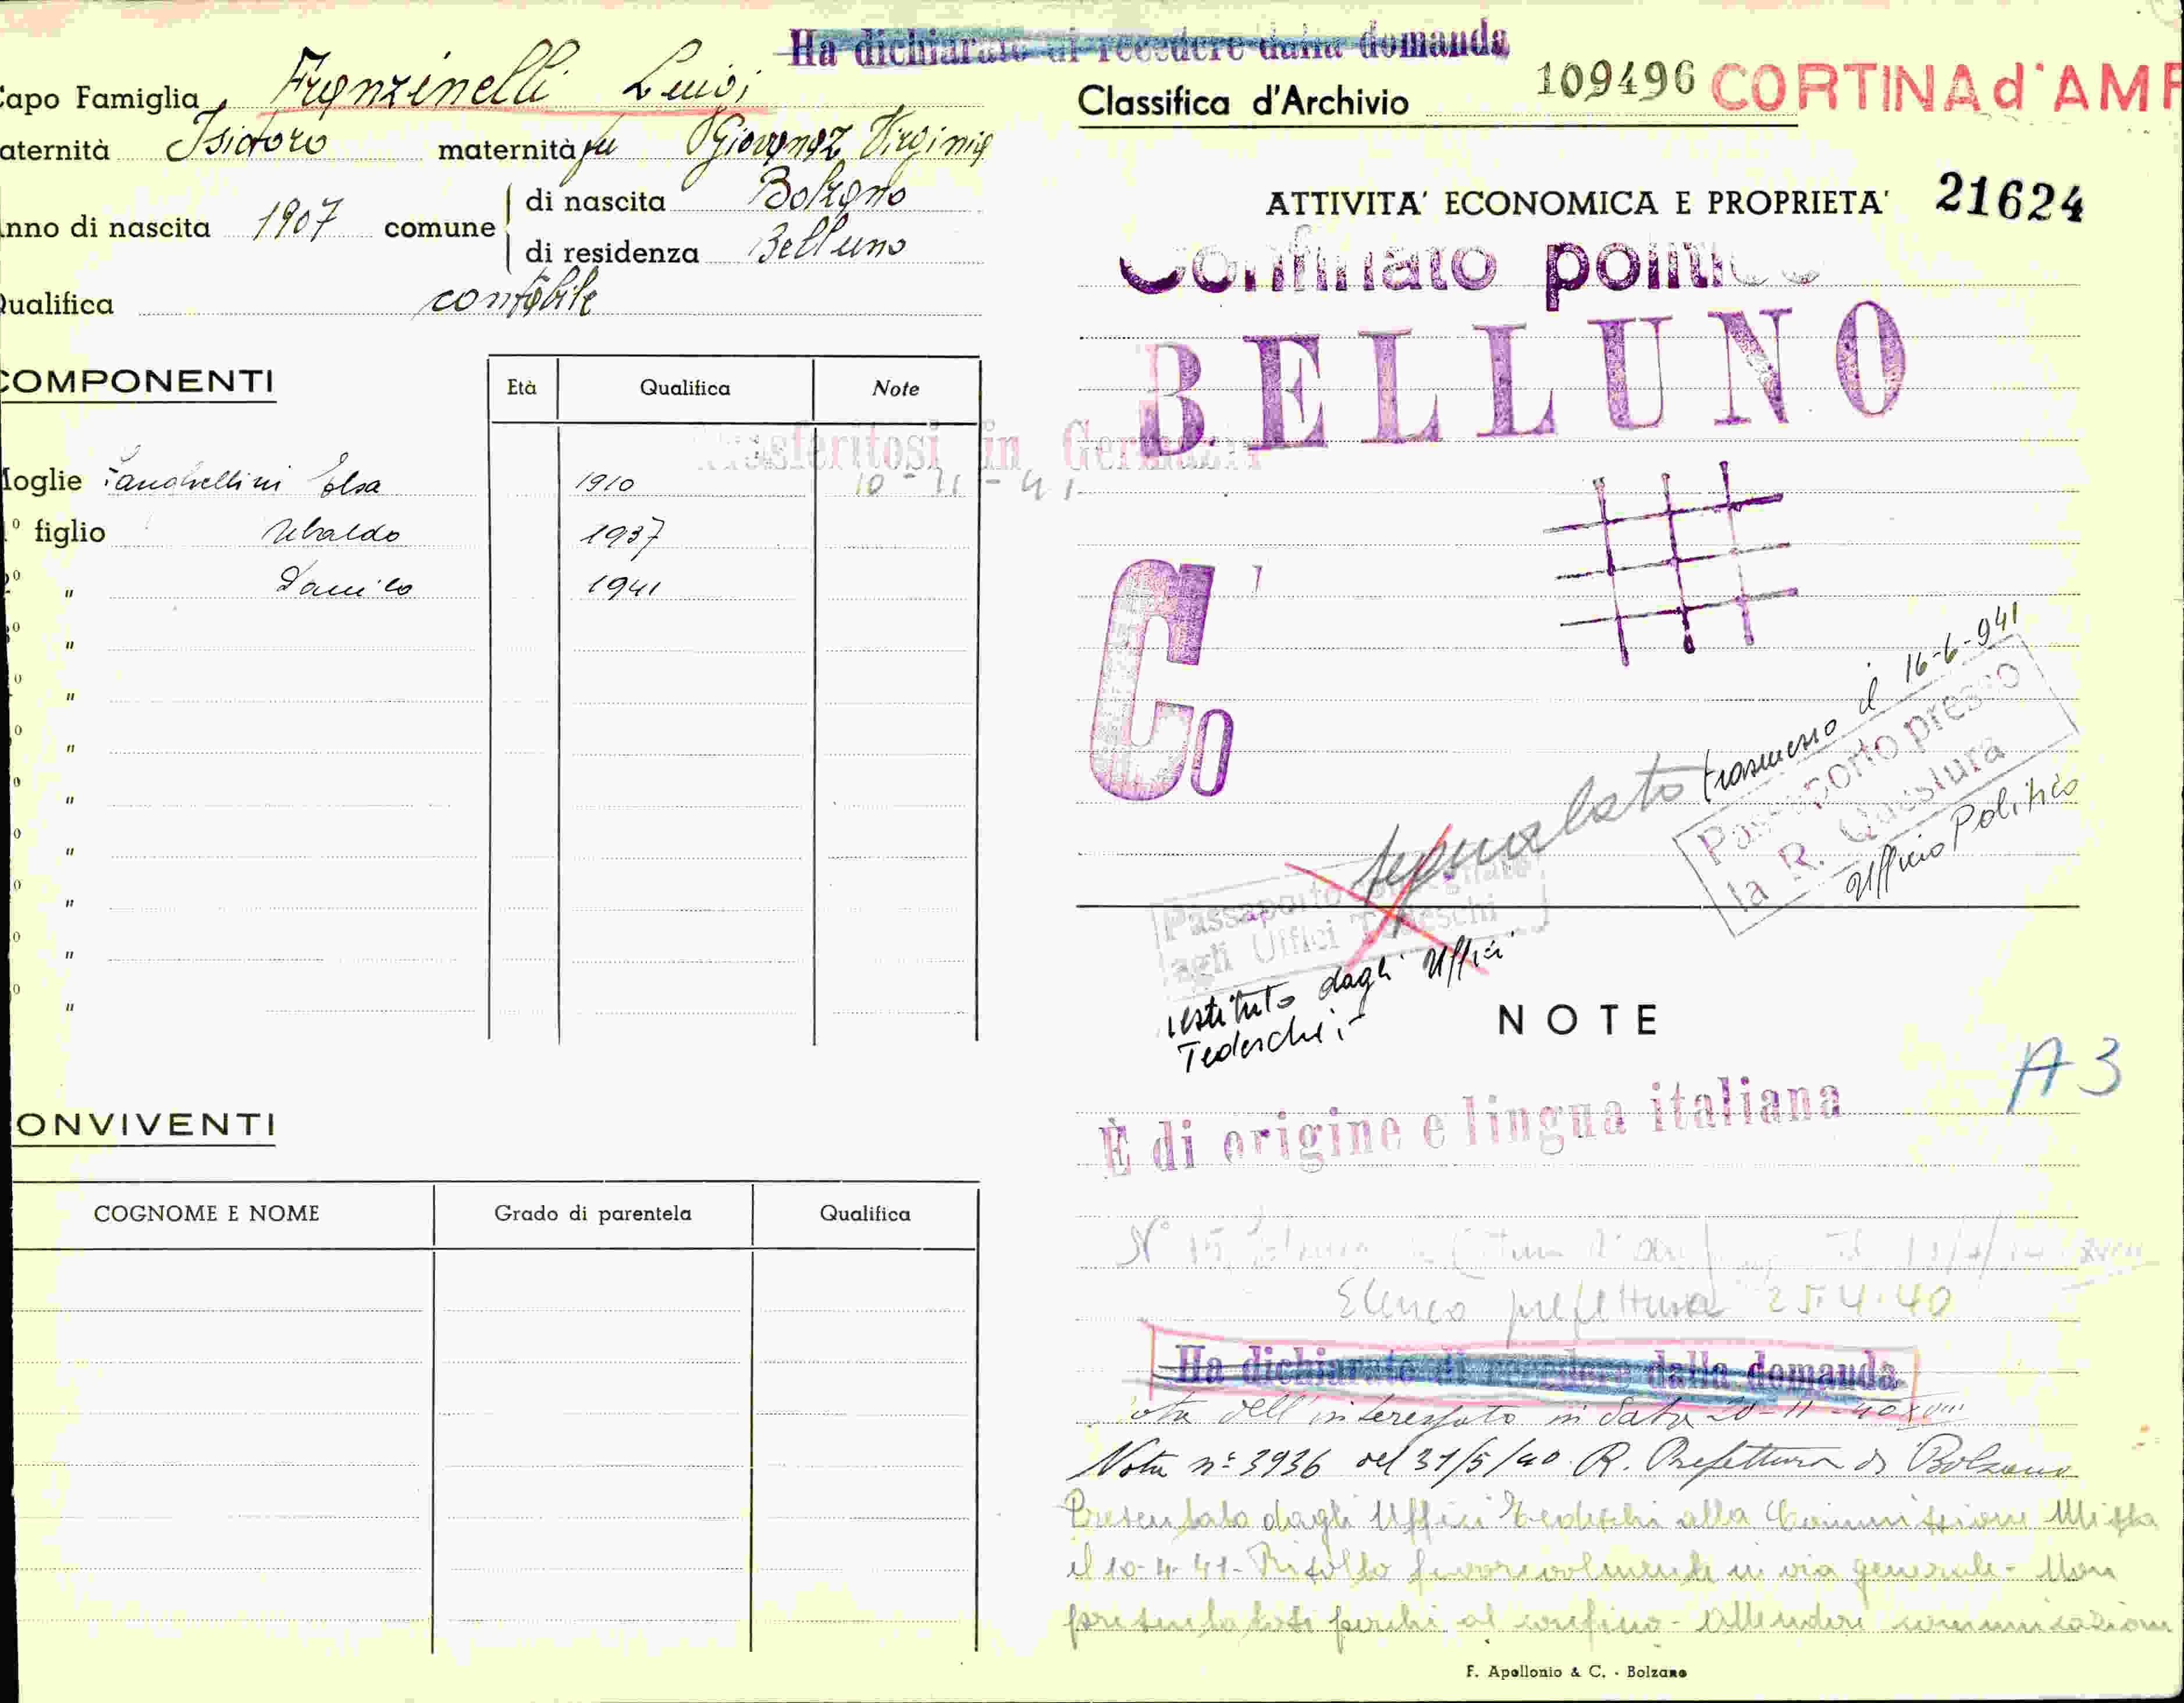 Ha dichiarato di recedere dalla domanda
apo Famiglia Franzinelli Luigi
aternità Isidoro maternità fu Giovanaz Virginia
nno di nascita 1907 comune di nascita Bolzano
di residenza Belluno
ualifica contabile
OMPONENTI
Età Qualifica Note
Trasferitosi in Germania
10-11-41
oglie Zanghellini Elsa 1910
° figlio Ubaldo 1937
" Danilo 1941
"
"
"
"
"
"
"
"
ONVIVENTI
COGNOME E NOME Grado di parentela Qualifica
Classifica d'Archivio 109496 CORTINA d'AMP
ATTIVITA' ECONOMICA E PROPRIETA' 21624
Confinato politico
BELLUNO
Co
segnalato
trasmesso il 16-6-941
Passaporto presso
la R. Questura
Ufficio Politico
Passaporto consegnato
agli Uffici Tedeschi
restituto dagli Uffici
Tedeschi
NOTE
A3
È di origine e lingua italiana
Elenco prefettura 25.4.40
Ha dichiarato di recedere dalla domanda
dell'interessato in data 20-11-40 XVIII
Nota n° 3936 del 31/5/40 R. Prefettura di Bolzano
Presentato dagli Uffici Tedeschi alla Commissione Mista
il 10-4-41- Risolto favorevolmente in via generale - Non
presentatosi perchè al confino - Attendere comunicazione
F. Apollonio & C. - Bolzano